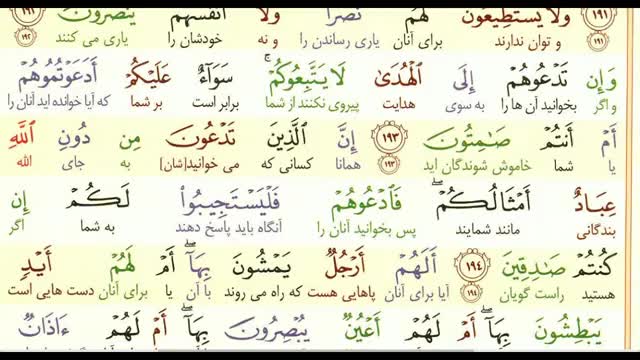 ١٩١ وَلَا يَسْتَطِيعُونَ لَهُمْ نَصْرًا وَلَا أَنفُسَهُمْ يَنصُرُونَ ١٩٢
١٩١ و توان ندارند برای آنان یاری رساندن را و نه خودشان را یاری می کنند ١٩٢
وَإِن تَدْعُوهُمْ إِلَى ٱلْهُدَىٰ لَا يَتَّبِعُوكُمْ ۚ سَوَآءٌ عَلَيْكُمْ أَدَعَوْتُمُوهُمْ
و اگر بخوانید آن ها را به سوی هدایت پیروی نکنند از شما برابر است بر شما که آیا خوانده اید آنان را
أَمْ أَنتُمْ صَـٰمِتُونَ ١٩٣ إِنَّ ٱلَّذِينَ تَدْعُونَ مِن دُونِ ٱللَّهِ
یا شما خاموش شوندگان اید ١٩٣ همانا کسانی که می خوانید[شان] به جای الله
عِبَادٌ أَمْثَالُكُمْ ۖ فَٱدْعُوهُمْ فَلْيَسْتَجِيبُوا۟ لَكُمْ إِن
بندگانی مانند شمایند پس بخوانید آنان را آنگاه باید پاسخ دهند به شما اگر
كُنتُمْ صَـٰدِقِينَ ١٩٤ أَلَهُمْ أَرْجُلٌ يَمْشُونَ بِهَآ ۖ أَمْ لَهُمْ أَيْدٍ
هستید راست گویان ١٩٤ آیا برای آنان پاهایی هست که راه می روند با آن یا برای آنان دست هایی است
يَبْطِشُونَ بِهَآ ۖ أَمْ لَهُمْ أَعْيُنٌ يُبْصِرُونَ بِهَآ ۖ أَمْ لَهُمْ ءَاذَانٌ